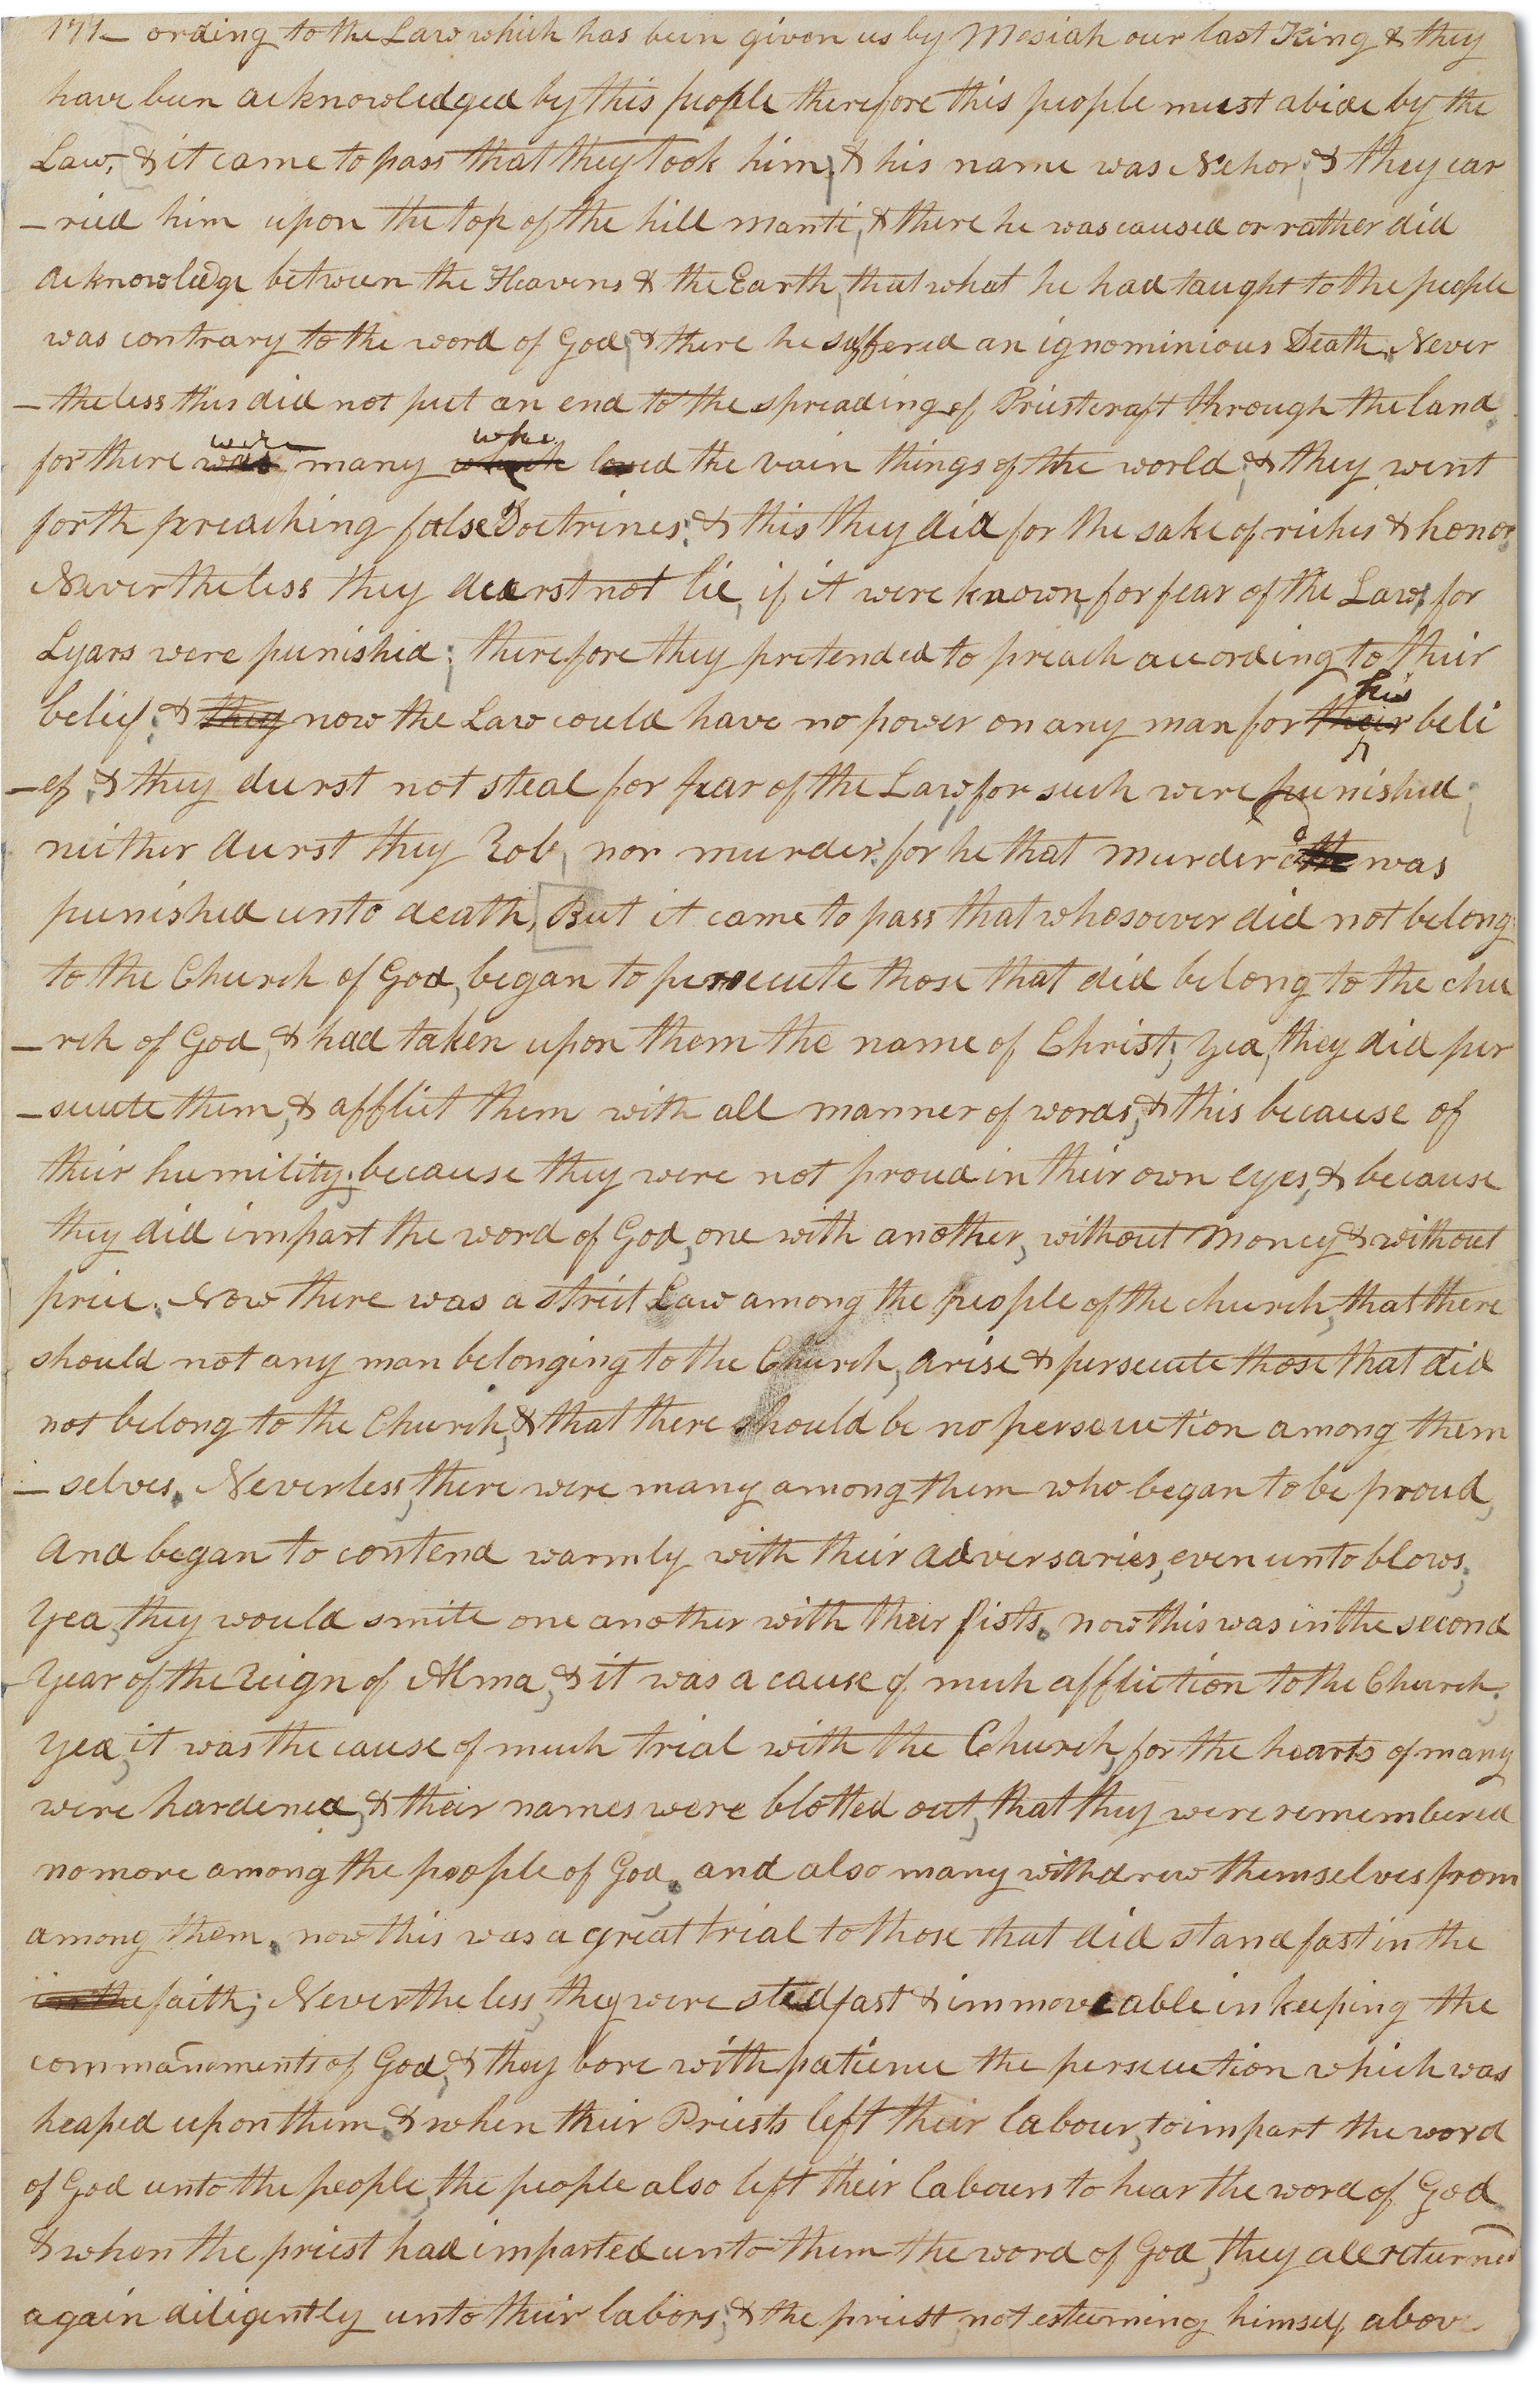 171— ording to the Law which has been given us by Mosiah our last King & they
have been acknowledged by this people therefore this people must abide by the
Law, & it came to pass that they took him, & his name was Nehor; & they car
—ried him upon the top of the hill manti, & there he was caused or rather did
acknowledge between the Heavens & the Earth, that what he had taught to the people
was contrary to the word of God; & there he suffered an ignominious Death. Never
—theless this did not put an end to the spreading of Priestcraft through the land
for there was were many which who loved the vain things of the world; & they went
forth preaching false Doctrines; & this they did for the sake of riches & honor.
Nevertheless they dearst not lie, if it were known, for fear of the Law; for
Lyars were punished; therefore they pretended to preach according to their
belief; & they now the Law could have no power on any man for their his beli
—ef. & they durst not steal for fear of the Law, for such were punished;
neither durst they Rob, nor murder; for he that murdered was
punished unto death, But it came to pass that whosoever did not belong
to the Church of God, began to persecute those that did belong to the chu
—rch of God, & had taken upon them the name of Christ; yea, they did per
—secute them, & afflict them with all manner of words, & this because of
their humility; because they were not proud in their own eyes, & because
they did impart the word of God, one with another, without money & without
price. Now there was a strict Law among the people of the church, that there
should not any man belonging to the Church, arise & persecute those that did
not belong to the Church, & that there should be no persecution among them
—selves. Neverless, there were many among them who began to be proud,
and began to contend warmly with their adversaries, even unto blows;
yea, they would smite one another with their fists. now this was in the second
year of the reign of Alma, & it was a cause of much affliction to the Church;
yea, it was the cause of much trial with the Church, for the hearts of many
were hardened, & their names were blotted out, that they were remembered
no more among the people of God. and also many withdrew themselves from
among them. now this was a great trial to those that did stand fast in the
in the faith; Nevertheless, they were stedfast & immoveable in keeping the
commandments of God, & they bore with patience the persecution which was
heaped upon them. & when their Priests left their labour, to impart the word
of God unto the people, the people also left their labours to hear the word of God
& when the priest had imparted unto them the word of God, they all returned
again diligently unto their labors; & the priest, not esteeming himself above